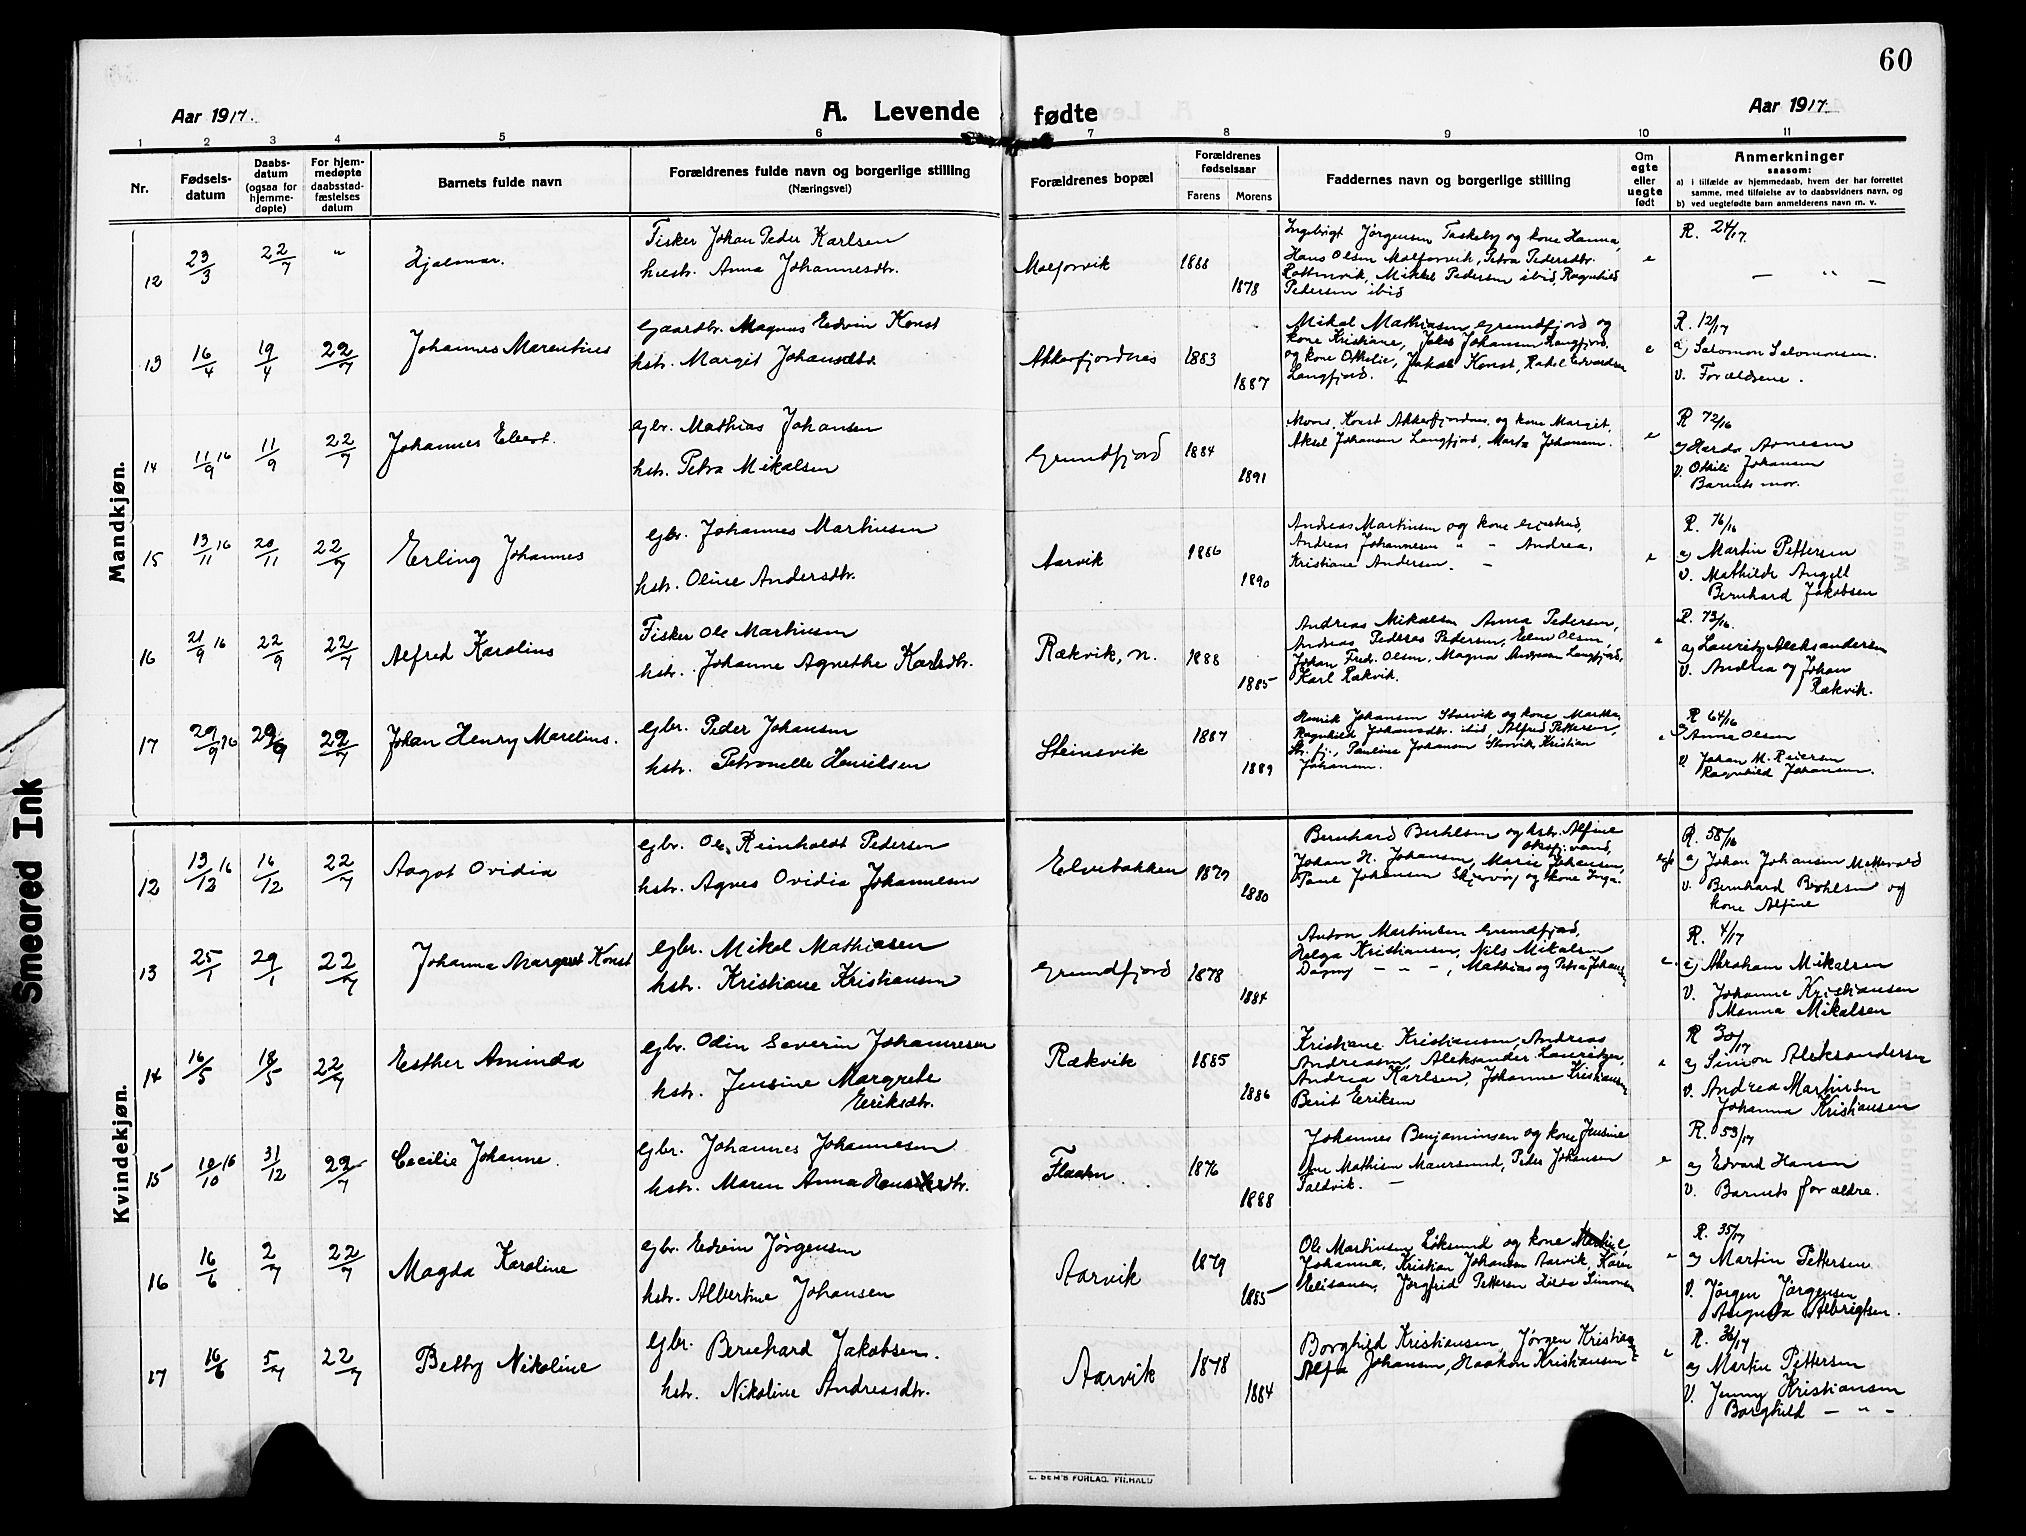 60
Aar 1917.
A. Levende fødte
Aar 1917.
1 2 3 4 5 6 7 8 9 10 11
Nr.
Fødsels-
datum
Daabs-
datum
(ogsaa for
hjemme-
døpte)
For hjem-
medøpte
daabsstad-
fæstelses
datum
Barnets fulde navn
Forældrenes fulde navn og borgerlige stilling
(Næringsvei)
Forældrenes bopæl
Forældrenes
fødselsaar
Farens
Morens
Faddernes navn og borgerlige stilling
Om
egte
eller
uegte
født
Anmerkninger
saasom:
a) i tilfælde av hjemmedaab, hvem der har forrettet
samme, med tilføielse av to daabsvidners navn, og
b) ved uegtefødte barn anmelderens navn m. v.
Mandkjøn.
12 23/3 22/7 " Hjalmar.
Fisker Johan Peder Karlsen
hustr. Anna Johannesdtr.
Malforvik 1888 1878
Ingebrigt Jørgensen Taskeby og kone Hanna,
Hans Olsen Malforvik, Petra Pedersdtr.
Rottenvik, Mikkel Pedersen ibid, Ragnhild
Pedersen ibid
e
R. 24/17.
— " —
13 16/4 19/4 22/7 Johannes Marentius
Gaardbr. Magnus Edvin Konst
hstr. Margit Johansdtr.
Akkarfjordnes 1883 1887
Mikal Mathiasen Grundfjord og
kone Kristiane, Jakob Johansen Langfjord,
og kone Othelie, Jakob Konst, Rakel Edvardsen
Langfjord. —
e
R. 12/17
a) Salomon Salomonsen.
v. Forældrene.
14 11/9 16 11/9 22/7 Johannes Ebert.
gbr. Mathias Johansen
hstr. Petra Mikalsen
Grundfjord 1884 1891
Mons. Konst Akkarfjordnes og kone Margit,
Aksel Johansen Langfjord, Marta Johansen.
e
R 72/16
a) Hardor Arnesen
v. Ottili Johansen
Barnets mor.
15 13/11 16 20/11 22/7 Erling Johannes
gbr. Johannes Martinsen
hstr. Oline Andersdtr.
Aarvik 1886 1890
Andreas Martinsen og kone Gjertrud,
Andreas Johannesen " - Andrea,
Kristiane Andersen. —
e
R. 76/16
a) Martin Pettersen
v. Mathilde Angell
Bernhard Jakobsen
16 21/9 16 22/9 22/7 Alfred Karolius
Fisker Ole Martinsen
hstr. Johanne Agnethe Karlsdtr.
Rækvik, n. 1888 1885
Andreas Mikalsen Anna Pedersen,
Andreas Pedersen, Elen Olsen,
Johan Fred. Olsen, Magna Andersen Langfjord,
Karl Rækvik.
e
R. 73/16.
a) Lauritz Aleksandersen
v. Andrea og Johan
Rækvik.
17 29/9 16 29/9 22/7 Johan Henry Marelius.
gbr. Peder Johansen
hstr. Petronelle Henriksen
Steinsvik 1887 1889
Henrik Johansen Storvik og kone Martha,
Ragnhild Johansdtr. ibid, Alfred Pettersen,
Str. fj., Pauline Johansen Storvik, Kristian
Johansen.
e
R 64/16
a) Anne Olsen
v. Johan M. Reiersen
Ragnhild Johansen.
Kvindekjøn.
12 13/12 16 16/12 22/7 Aagot Ovidia
gbr. Ole Reinholdt Pedersen
hstr. Agnes Ovidia Johannesen
Elvebakken 1879 1880
Bernhard Berhlsen og hstr. Alfine
Oksfj.vand,
Johan H. Johansen, Marie Johansen,
Paul Johansen Skjervøy og kone Inga.
egte
R. 58/16
a) Johan Johansen Mettevold
v. Bernhard Berhlsen og
kone Alfine
13 25/1 29/1 22/7 Johanna Margret Konst
gbr. Mikal Mathiasen
hstr. Kristiane Kristiansen
Grundfjord 1878 1884
Anton Martinsen Grundfjord,
Helga Kristiansen, Nils Mikalsen
Dagny — " —, Mathias og Petra Johansen
e.
R. 4/17
a) Abraham Mikalsen
v. Johanne Kristiansen
Manna Mikalsen
14 16/5 18/5 22/7 Esther Aminda
gbr. Odin Severin Johannesen
hstr. Jensine Margrete
Eriksdtr.
Rækvik 1885 1886
Kristiane Kristiansen, Andreas
Andreasen, Aleksander Lauritzen,
Andrea Karlsen, Johanne Kristiansen
Berit Eriksen
e
R 30/17
a) Simon Aleksandersen
v. Andrea Martinsen
Johanna Kristiansen
15 10/10 16 31/12 22/7 Cecilie Johanne.
gbr. Johannes Johannesen
hstr. Maren Anna Henriksdtr.
Flaaten. 1876 1888
Johannes Benjaminsen og kone Jensine
Ane Mathisen Maursund, Peder Johansen
Taldvik. —
e
R. 53/17
a) Edvard Hansen
v. Barnets forældre.
16 16/6 2/7 22/7 Magda Karoline
gbr. Edvin Jørgensen
hstr. Albertine Johansen
Aarvik 1879 1885
Ole Martinsen Løksund og kone Martine,
Johanna, Kristian Johansen Aarvik, Karen
Eliassen, Jørgfrid Pettersen Hilda Simonsen
e
R. 35/17
a) Martin Pettersen
v. Jørgen Jørgensen
Augusta Albrigtsen.
17 16/6 5/7 22/7 Betty Nikoline
gbr. Bernhard Jakobsen.
hstr. Nikoline Andreasdtr.
Aarvik 1878 1884
Borghild Kristiansen, Jørgen Kristiansen
Alfa Johansen, Haakon Kristiansen
e
R. 36/17
a) Martin Pettersen
v. Jenny Kristiansen
Borghild — " —
E. SEM'S FORLAG, FR.HALD
Smeared Ink